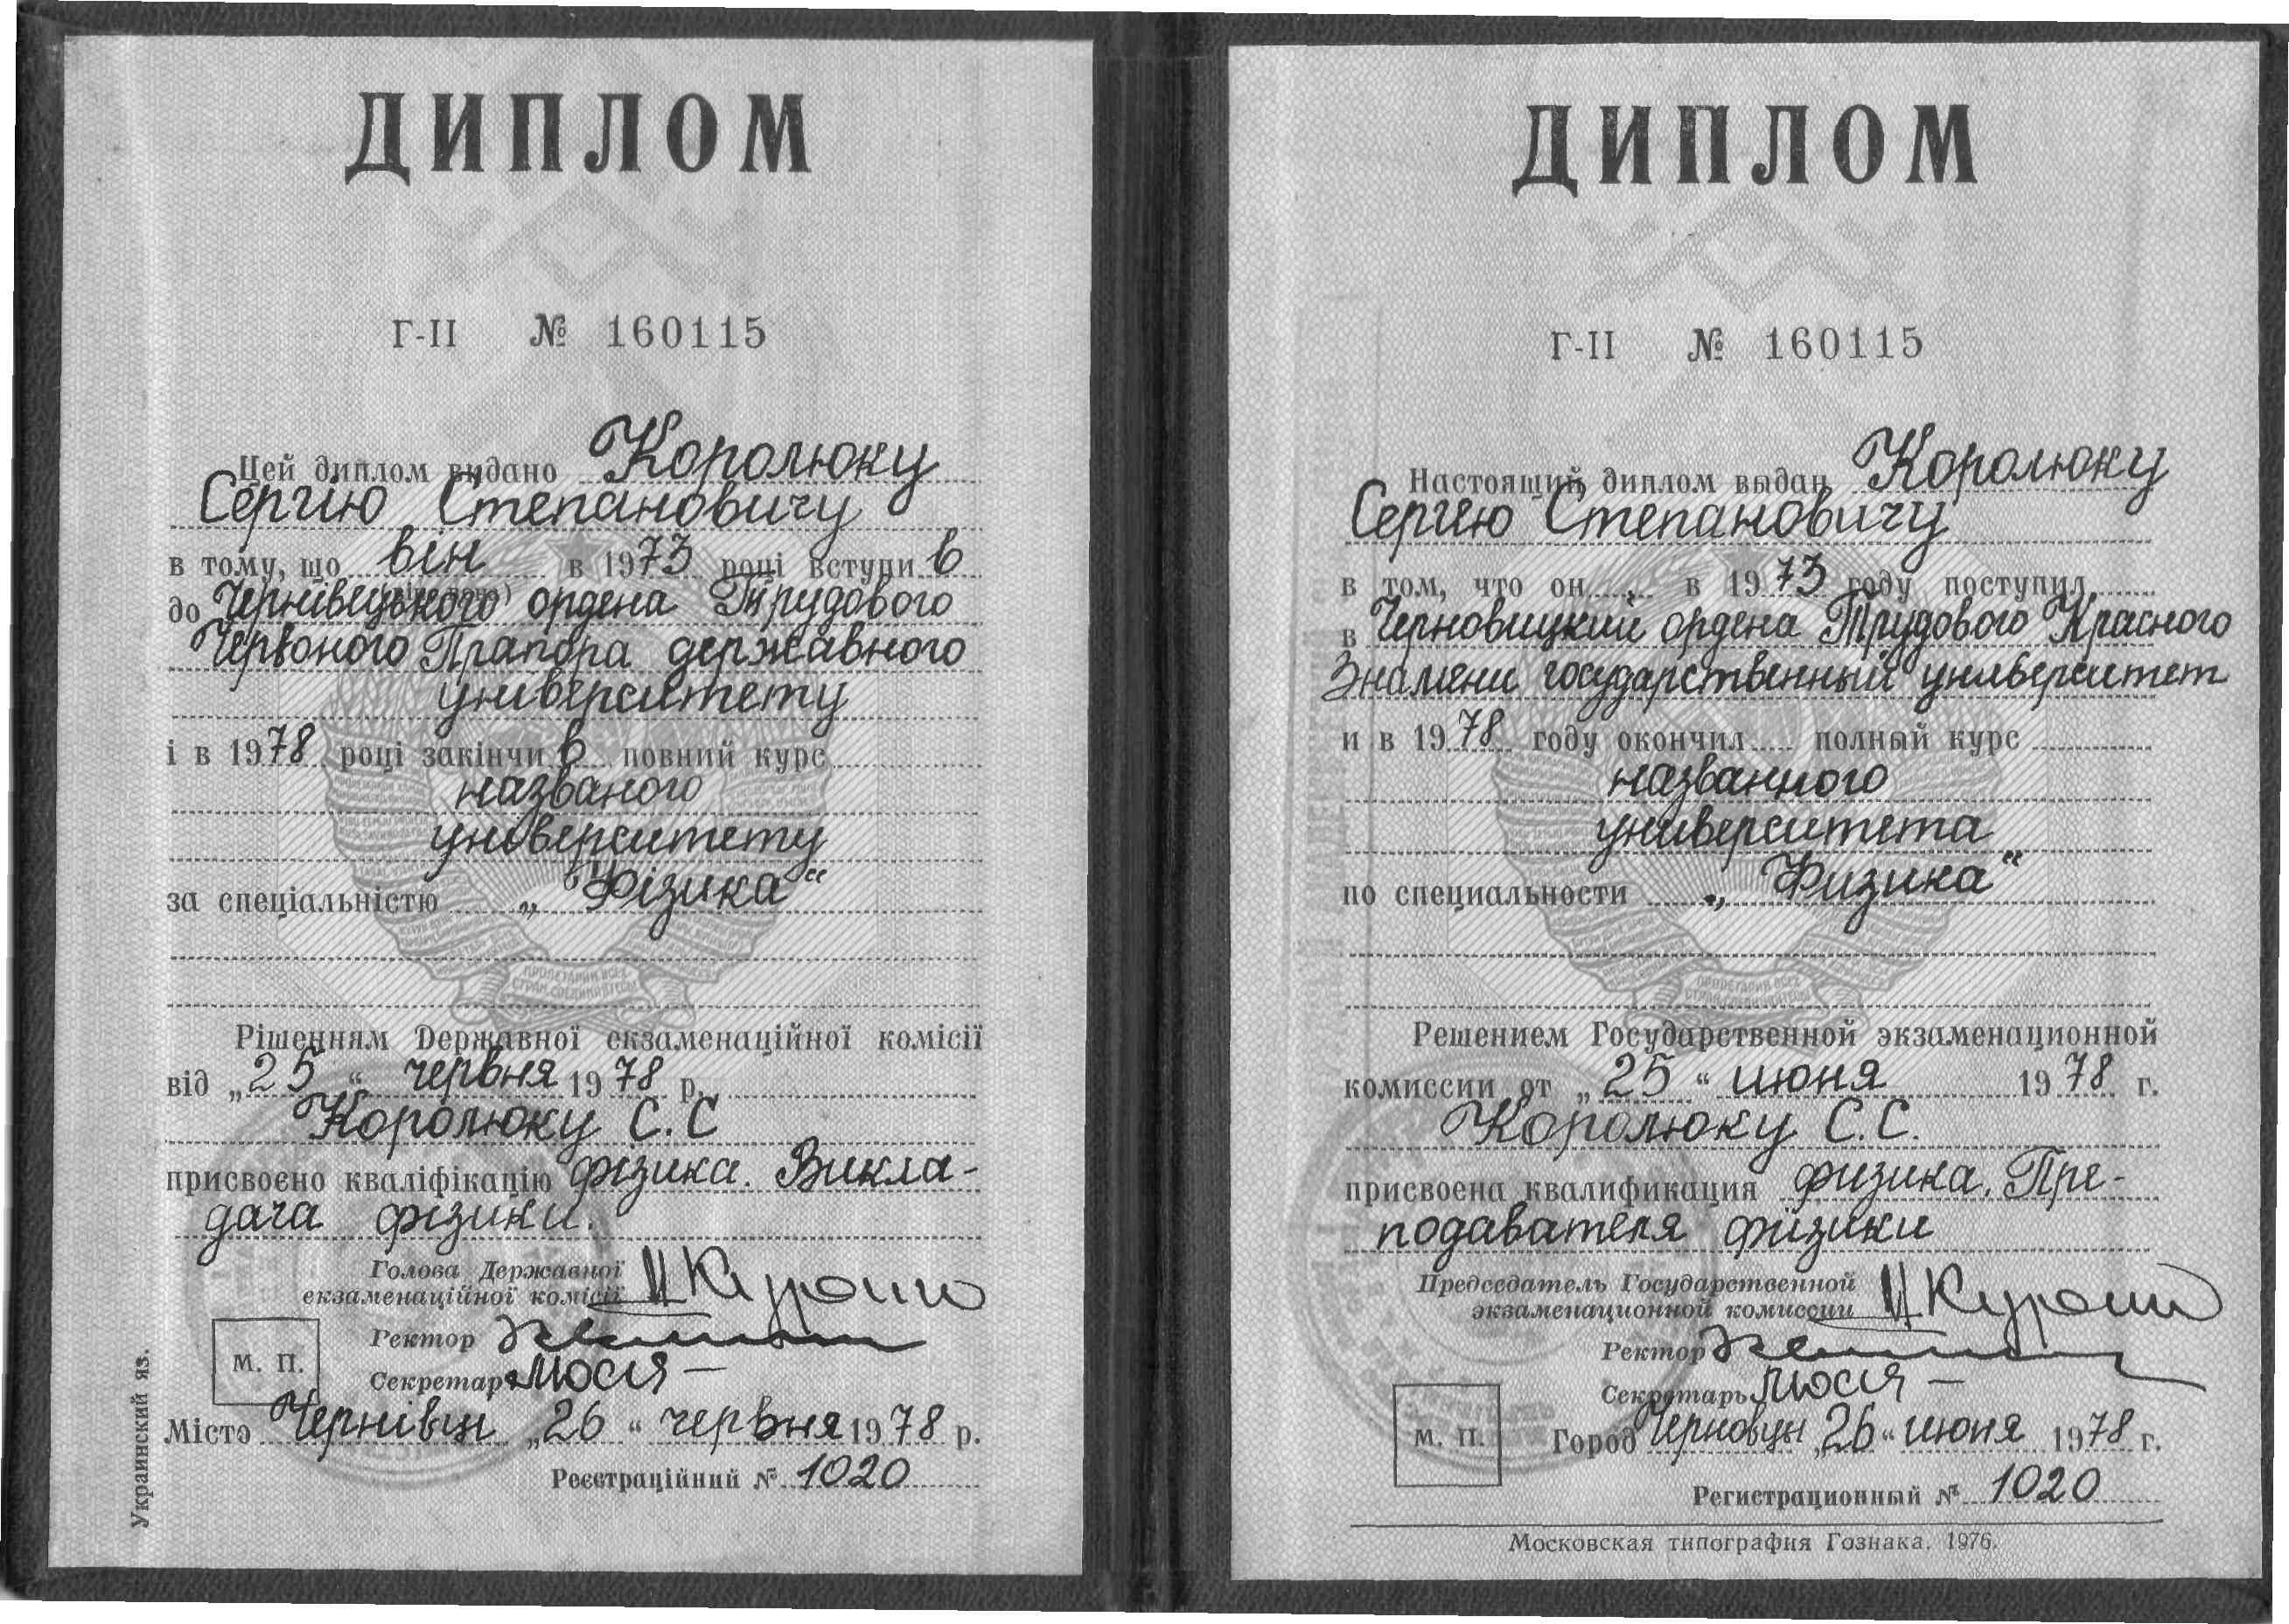 ДИПЛОМ
Г-II № 160115
Цей диплом видано Королюку
Сергію Степановичу
в тому, що він в 1973 році вступив
до Чернівецького ордена Трудового
Червоного Прапора державного
університету
і в 1978 році закінчив повний курс
названого
університету
за спеціальністю „Фізика“
Рішенням Державної екзаменаційної комісії
від „25“ червня 1978 р.
Королюку С.С
присвоєно кваліфікацію фізика. Викла-
дача фізики.
Голова Державної
екзаменаційної комісії
Ректор
М. П.
Секретар
Місто Чернівці „26“ червня 1978 р.
Реєстраційний № 1020
Украинский яз.
ДИПЛОМ
Г-II № 160115
Настоящий диплом выдан Королюку
Сергею Степановичу
в том, что он в 1973 году поступил
в Черновицкий ордена Трудового Красного
Знамени государственный университет
и в 1978 году окончил полный курс
названного
университета
по специальности „Физика“
Решением Государственной экзаменационной
комиссии от „25“ июня 1978 г.
Королюку С.С.
присвоена квалификация физика. Пре-
подавателя физики
Председатель Государственной
экзаменационной комиссии
Ректор
Секретарь
М. П.
Город Черновцы „26“ июня 1978 г.
Регистрационный № 1020
Московская типография Гознака. 1976.